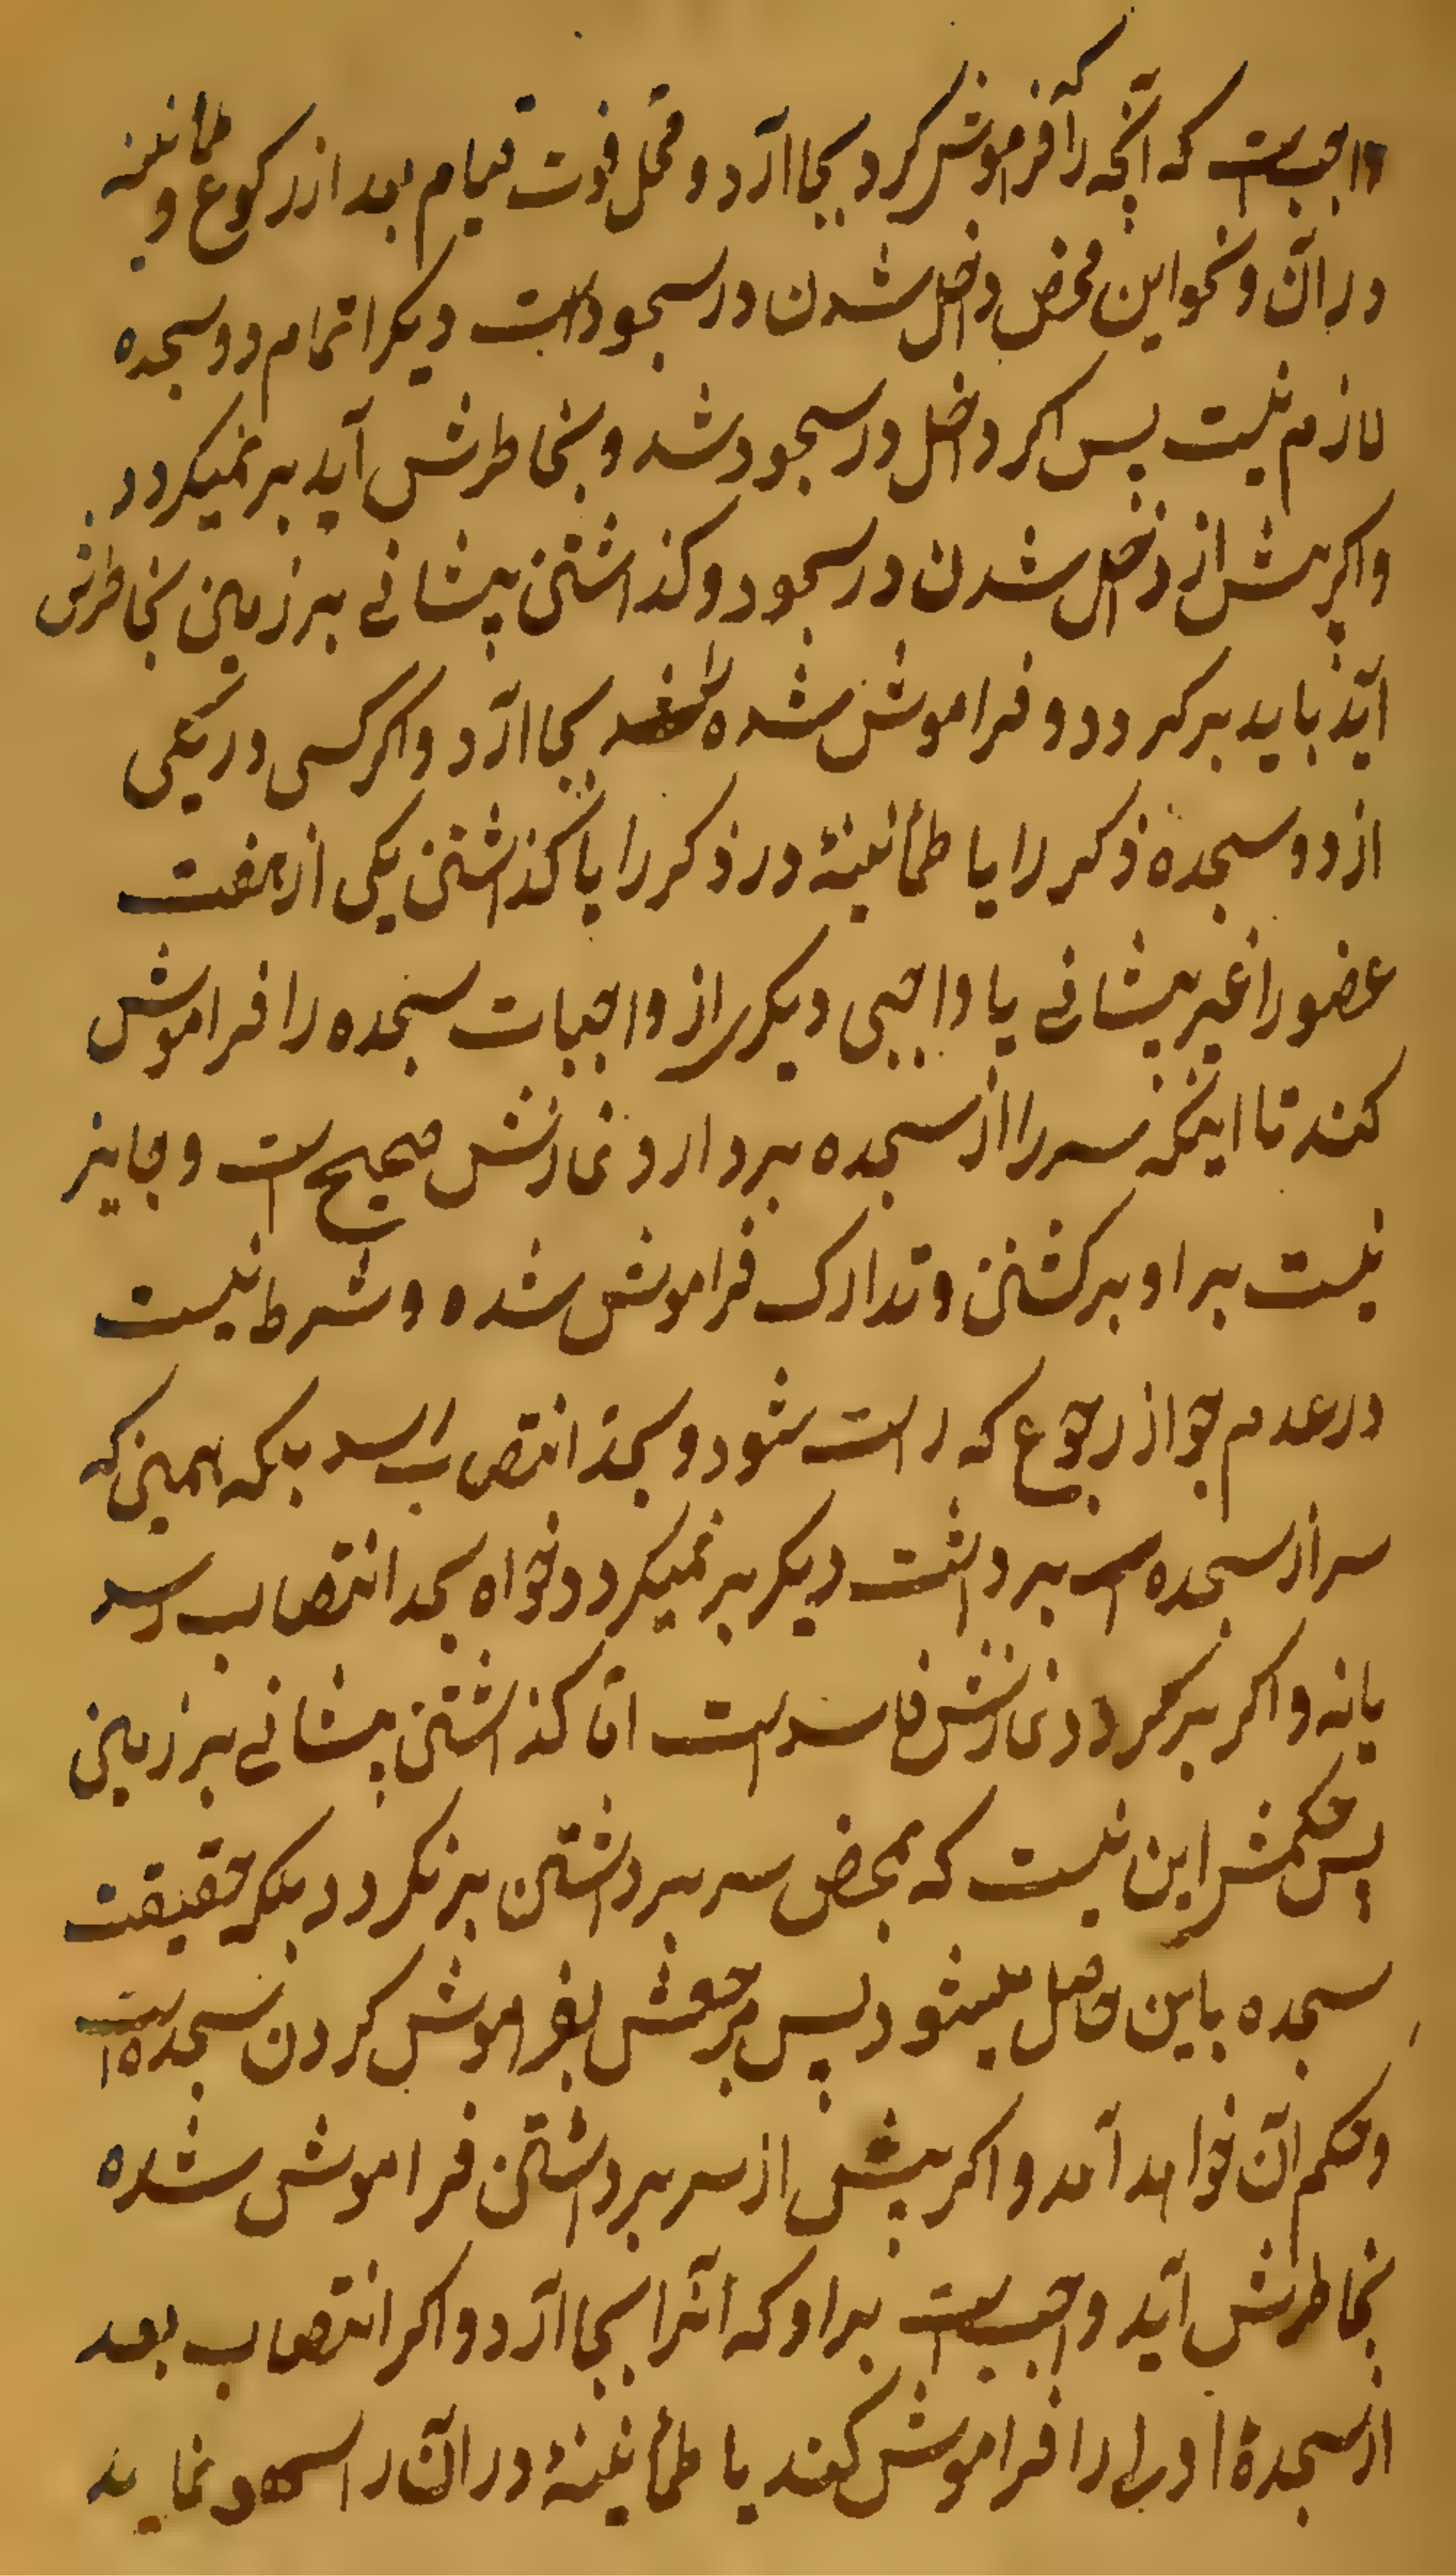 واجبست که آنچه را که فراموش کرد بجا آرد و محل فوت قیام بعد از رکوع و طمأنینه
در آن و نحو این محض داخل شدن در سجود است دیگر اتمام دو سجده
لازم نیست پس اگر داخل در سجود شد و بخاطرش آید بر نمیگردد
و اگر پیش از داخل شدن در سجود و گذاشتن پیشانے بر زمین بخاطرش
آید باید برگردد و فراموش شده را بجا آرد و اگر کسی در یکی
از دو سجده ذکر را یا طمأنینهٔ در ذکر را یا گذاشتن یکی از هفت
عضو را غیر پیشانے یا واجبی دیگر از واجبات سجده را فراموش
کند تا اینکه سر را از سجده بردارد نمازش صحیح است و جایز
نیست بر او برگشتن و تدارک فراموش شده و شرط نیست
در عدم جواز رجوع که راست شود و بحد انتصاب برسد بلکه همین که
سر از سجده بر داشت دیگر بر نمیگردد خواه بحد انتصاب رسد
یا نه و اگر برگردد نمازش فاسد است اما گذاشتن پیشانے بر زمین
پس حکمش این نیست که بمحض سر برداشتن برنگردد بلکه حقیقت
سجده باین حاصل میشود پس مرجعش بفراموش کردن سجده است
و حکم آن خواهد آمد و اگر پیش از سر برداشتن فراموش شده
بخاطرش آید واجبست بر او که آنرا بجا آرد و اگر انتصاب بعد
از سجدهٔ اولی را فراموش کند یا طمأنینهٔ در آن را سهو نماید